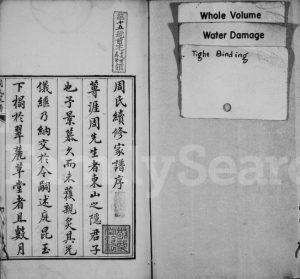 Whole Volume
Water Damage
Tight Binding
周氏續修家譜序
蓴涯周先生者東山之隱君子
也子景慕久而未獲親炙其光
儀繼乃納交於令嗣述庭昆玉
下榻於翠麓草堂者且數月